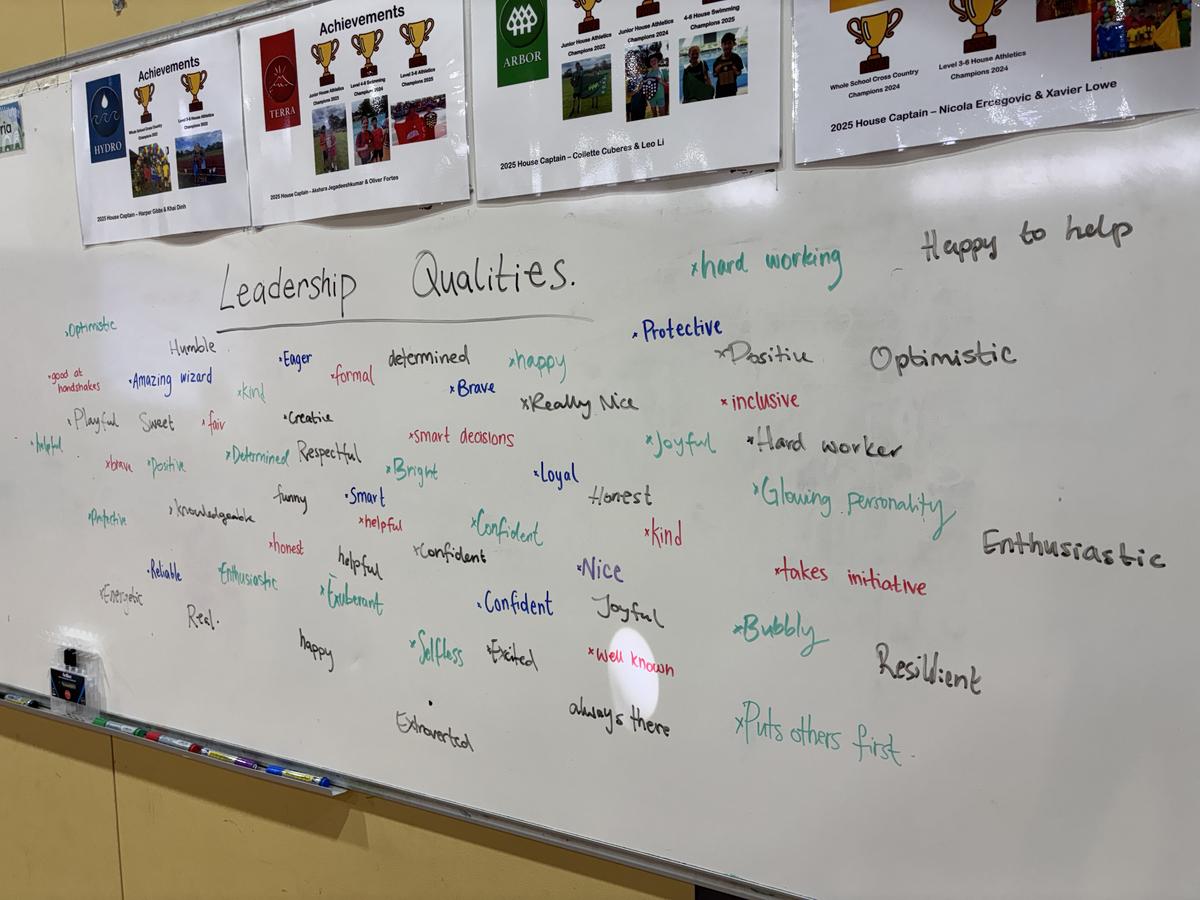 ria
HYDRO
Achievements
Whole School Cross Country
Champions 2022
Level 3-6 House Athletics
Champions 2022
2025 House Captain – Harper Gibbs & Khai Dinh
TERRA
Achievements
Junior House Athletics
Champions 2023
Level 4-6 Swimming
Champions 2024
Level 3-6 Athletics
Champions 2025
2025 House Captain – Akshara Jegadeeshkumar & Oliver Fortes
ARBOR
Junior House Athletics
Champions 2022
Junior House Athletics
Champions 2024
4-6 House Swimming
Champions 2025
2025 House Captain – Collette Cuberes & Leo Li
Whole School Cross Country
Champions 2024
Level 3-6 House Athletics
Champions 2024
2025 House Captain – Nicola Ercegovic & Xavier Lowe
Leadership Qualities.
×hard working
Happy to help
Optimistic
Humble
Eager
determined
×happy
Protective
×Positive
Optimistic
good at
handshakes
Amazing wizard
×kind
×formal
×Brave
×Really Nice
×inclusive
Playful
Sweet
fair
Creative
×smart decisions
×Joyful
×Hard worker
helpful
×brave
×Positive
×Determined
Respectful
×Bright
×Loyal
Honest
×Glowing personality
Protective
knowledgeable
funny
×Smart
×helpful
×Confident
×kind
Enthusiastic
×honest
helpful
×Confident
Nice
×takes initiative
Reliable
Enthusiastic
×Exuberant
Confident
Joyful
×Bubbly
×Energetic
Real.
happy
×Selfless
×Excited
×well known
Resillient
Extroverted
always there
×Puts others first.